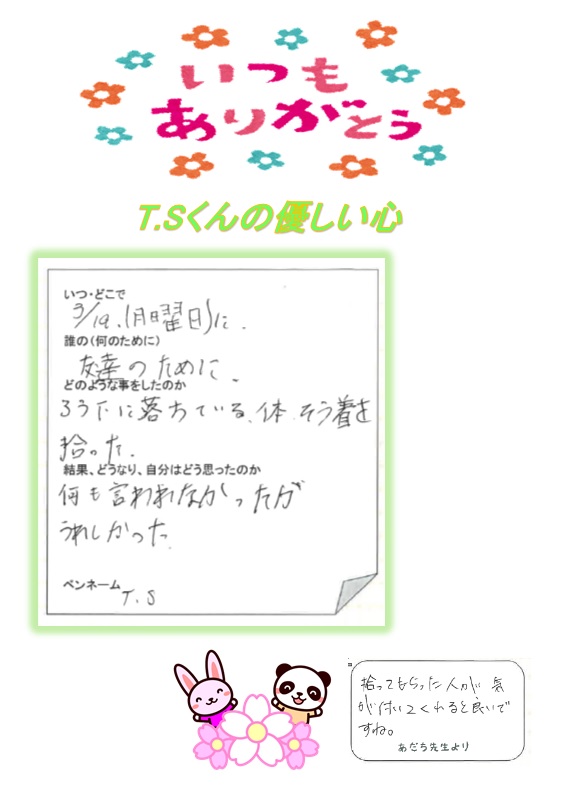 いつも
ありがとう
T.Sくんの優しい心
いつ・どこで
3/19.(月曜日)に.
誰の(何のために)
友達のために.
どのような事をしたのか
ろう下に落ちている、体そう着を
拾った.
結果、どうなり、自分はどう思ったのか
何も言われなかったが
うれしかった.
ペンネーム
T.S
拾ってもらった人が気
が付いてくれると良いで
すね。
あだち先生より